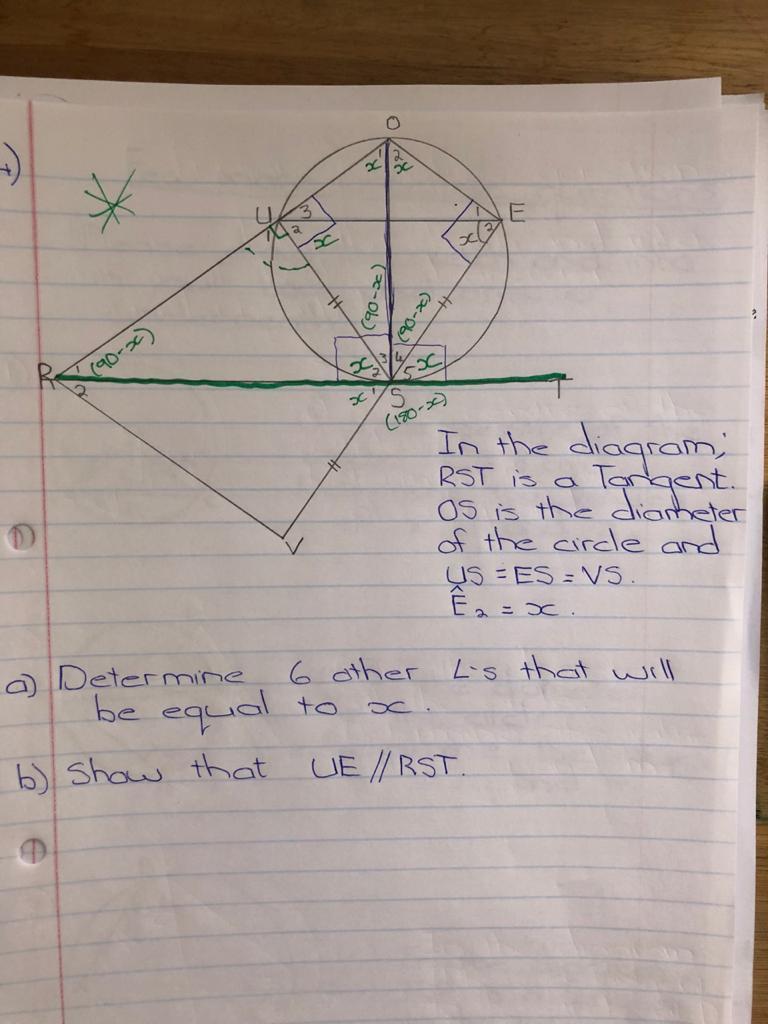 O
x 1 2 x
U 3 1 E
1 2 x x 2
(90-x) (90-x)
R 1 (90-x)
2
x 2 3 4 5 x T
x 1 S
(180-x)
V
In the diagram;
RST is a Tangent.
OS is the diameter
of the circle and
US = ES = VS.
Ê₂ = x.
a) Determine 6 other L's that will
be equal to x.
b) Show that UE // RST.